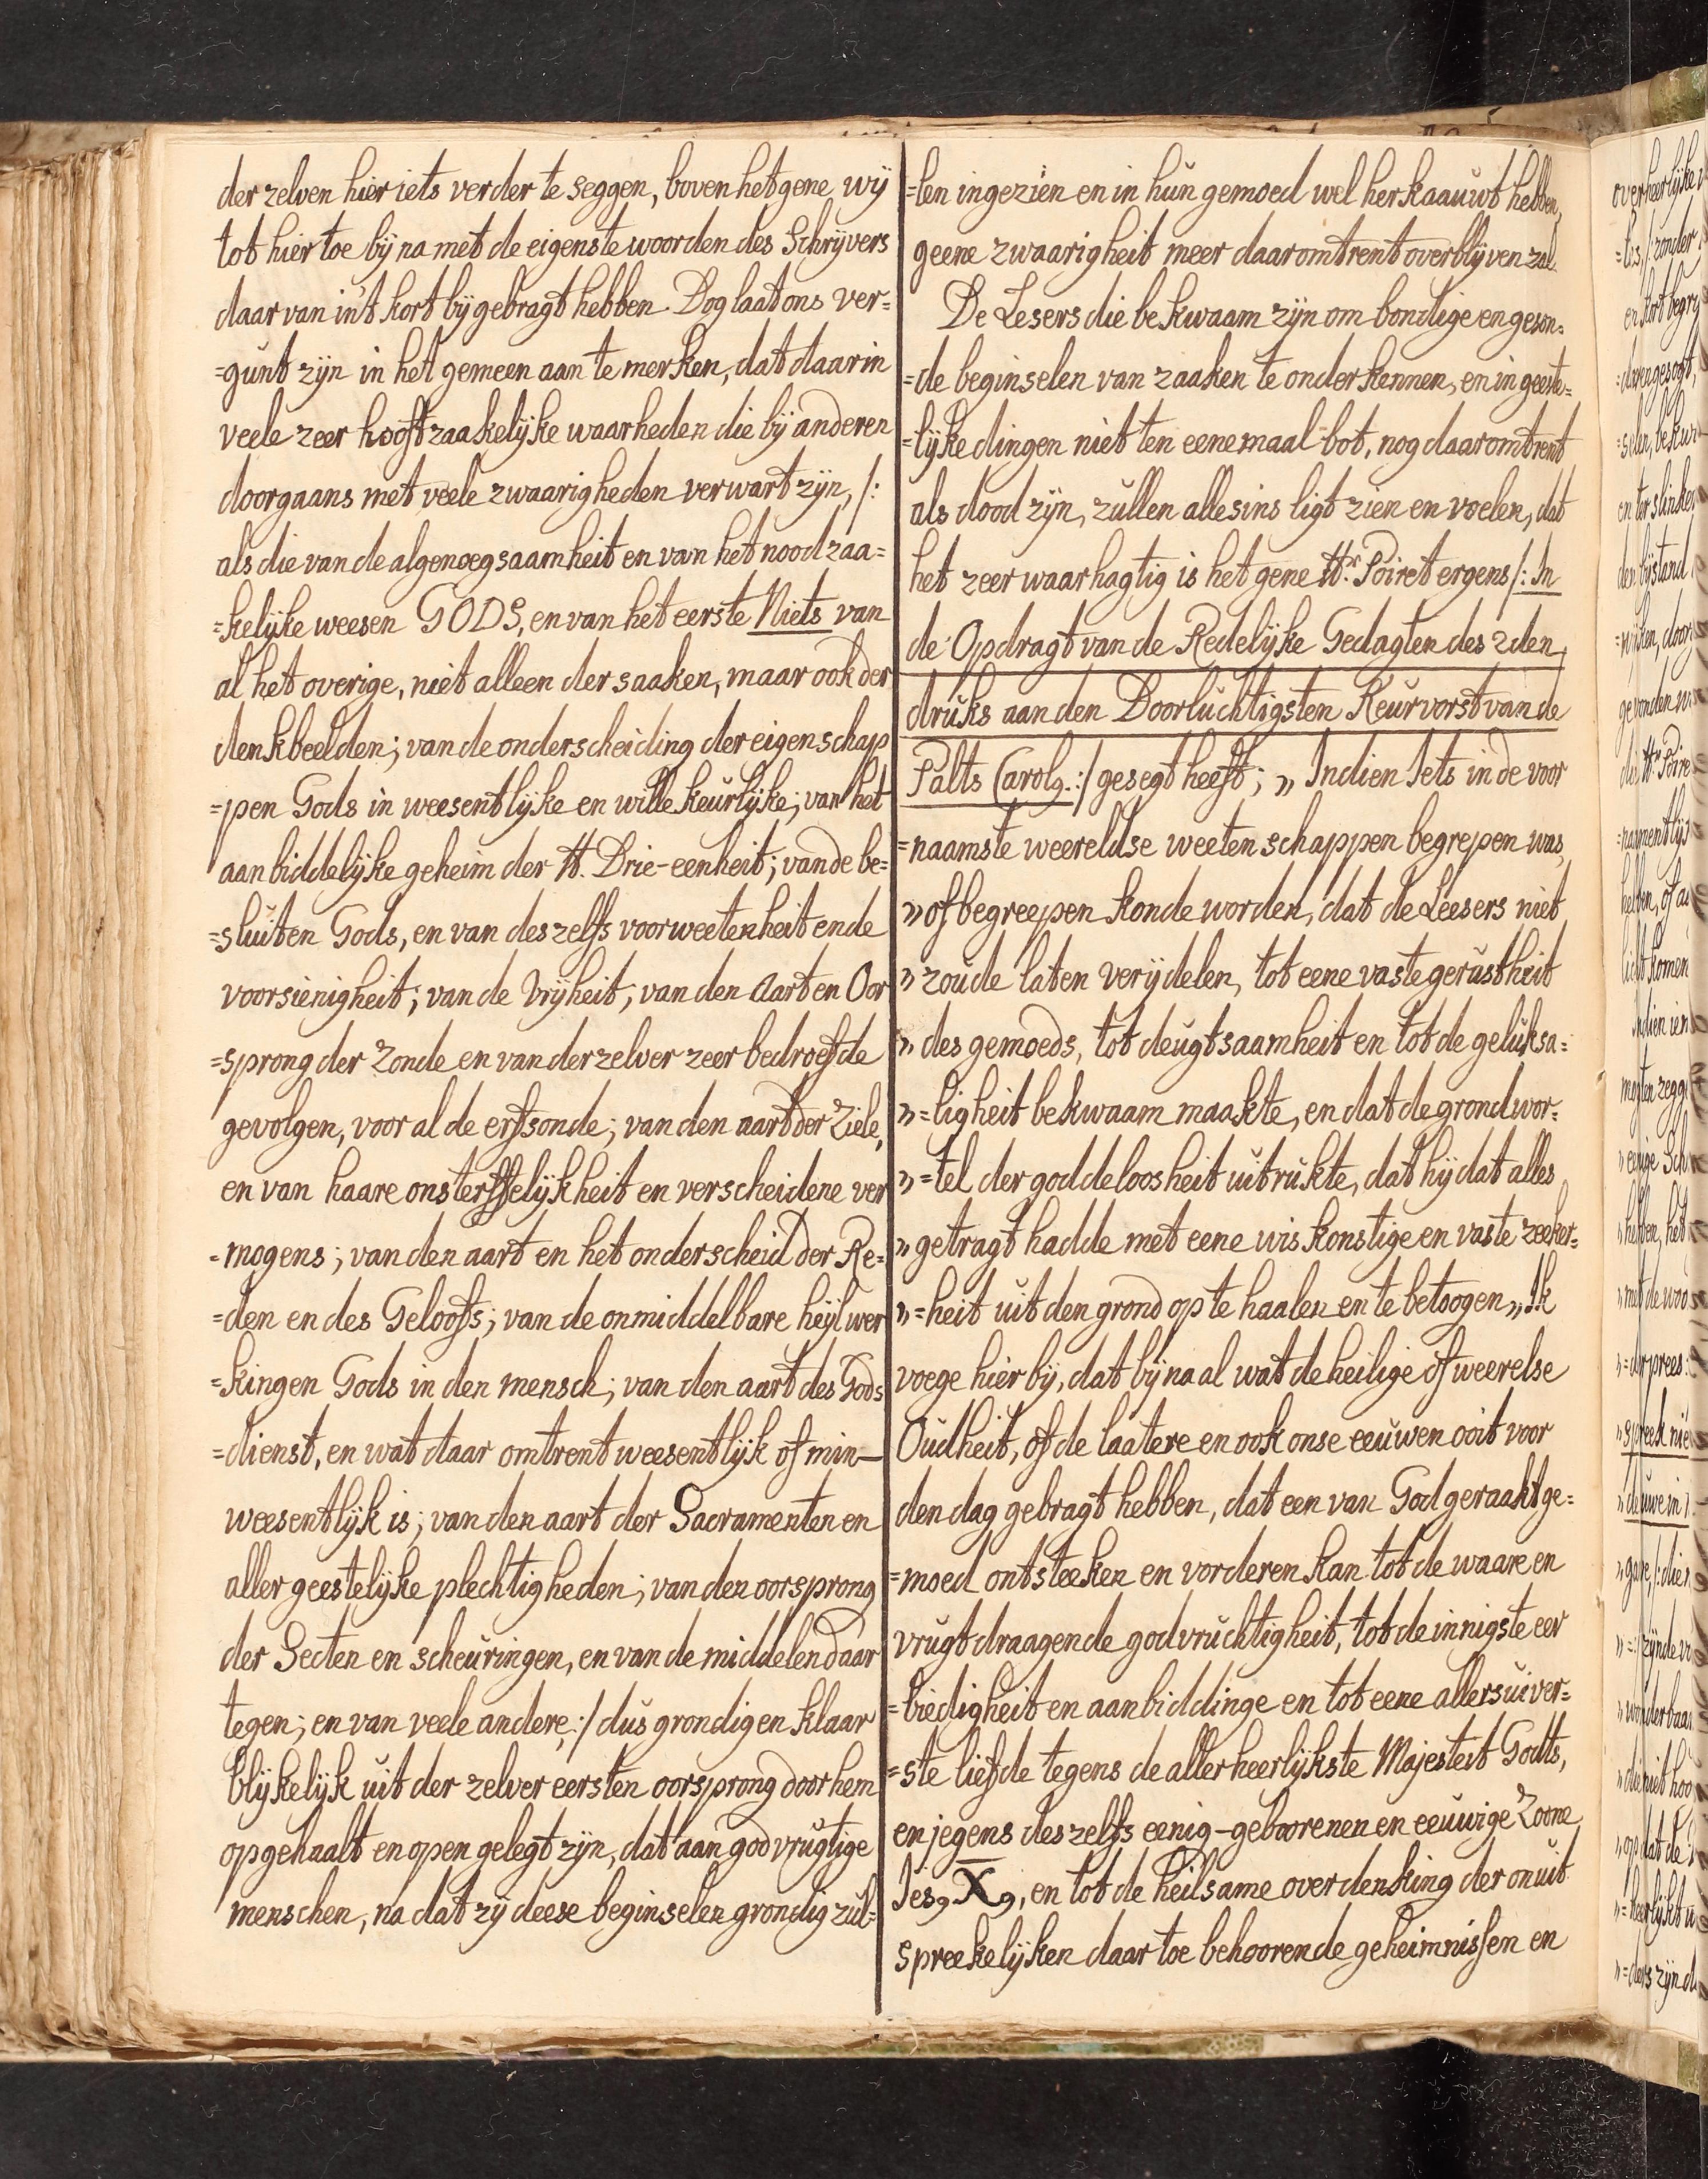 der zelven hier iets verder te seggen, boven het gene wij
tot hier toe bij na met de eigenste woorden des Schrijvers
daar van in't kort bijgebragt hebben. Dog laat ons ver=
=gunt zijn in het gemeen aan te merken, dat daar in
veele zeer hooftzaakelijke waarheden die bij anderen
doorgaans met veele zwaarigheden verwart zijn, /:
als die van de algenoegsaamheit en van het noodzaa=
=kelijke weesen GODS, en van het eerste Niets van
al het overige, niet alleen der saaken, maar ook der
denkbeelden; van de onderscheiding der eigenschap
=pen Gods in weesentlijke en willekeurlijke; van het
aanbiddelijke geheim der H. Drie-eenheit; van de be=
=sluiten Gods, en van deszelfs voorweetenheit en de
voorsienigheit; van de Vrijheit; van den Aart en Oor
=sprong der Zonde en van derzelver zeer bedroefde
gevolgen, voor al de erfsonde; van den aart der Ziele,
en van haare onsterffelijkheit en verscheidene ver
=mogens; van den aart en het onderscheid der Re=
=den en des Geloofs; van de onmiddelbare heijlwer
=kingen Gods in den mensch; van den aart des Gods
=dienst, en wat daar omtrent weesentlijk of min-
weesentlijk is; van den aart der Sacramenten en
aller geestelijke plechtigheden; van den oorsprong
der Secten en scheuringen, en van de middelen daar
tegen; en van veele andere, :/ dus grondig en klaar
blijkelijk uit der zelver eersten oorsprong door hem
opgehaalt en open gelegt zijn, dat aan godvrugtige
menschen, na dat zij deese beginselen grondig zul=
=len ingezien en in hun gemoed wel herkaauwt hebben,
geene zwaarigheit meer daaromtrent overblijven zal.
De Lesers die bekwaam zijn om bondige en geson=
=de beginselen van zaaken te onderkennen, en in geeste=
=lijke dingen niet ten eenemaal bot, nog daaromtrent
als dood zijn, zullen allesins ligt zien en voelen, dat
het zeer waarhagtig is het gene Hr. Poiret ergens /: In
de Opdragt van de Redelijke Gedagten des 2den
druks aan den Doorluchtigsten Keurvorst van de
Palts Carolg. :/ gesegt heeft; „ Indien Iets in de voor
=naamste weereldse weetenschappen begrepen was,
„ of begreepen konde worden, dat de Leesers niet
„ zoude laten verijdelen, tot eene vaste gerustheit
„ des gemoeds, tot deugtsaamheit en tot de geluksa=
„ =ligheit bekwaam maakte, en dat de grondwor=
„ =tel der goddeloosheit uitrukte, dat hij dat alles
„ getragt hadde met eene wiskonstige en vaste zeeker=
„ =heit uit den grond op te haalen en te betoogen „ Ik
voege hier bij, dat bijna al wat de heilige of weerelse
Oudheit, of de laatere en ook onse eeuwen ooit voor
den dag gebragt hebben, dat een van God geraakt ge=
=moed ontsteeken en vorderen kan tot de waare en
vrugtdraagende godvruchtigheit, tot de innigste eer
=biedigheit en aanbiddinge en tot eene allersuiver=
=ste liefde tegens de allerheerlijkste Majesteit Godts,
en jegens deszelfs eenig-geboorenen en eeuwige Zoone
Jesg Xg, en tot de heilsame overdenking der onuit
spreekelijken daar toe behoorende geheimnissen en